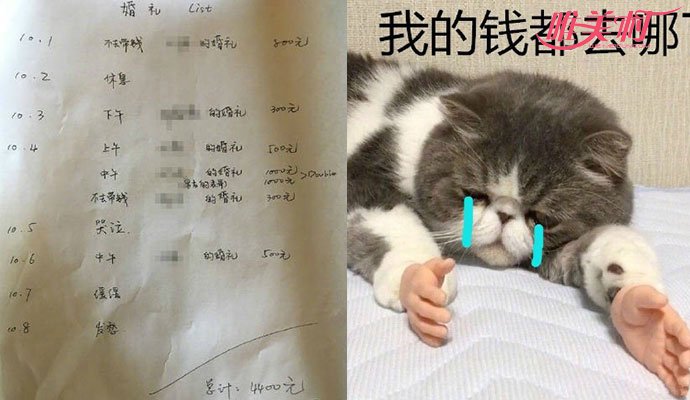 婚礼 List
10.1 不去带钱 的婚礼 800元
10.2 休息
10.3 下午 的婚礼 300元
10.4 上午 的婚礼 500元
中午 的婚礼 1000元 >Double
1000元
不去带钱 的婚礼 300元
10.5 哭泣
10.6 中午 的婚礼 500元
10.7 缓缓
10.8 发愁
总计: 4400元
我的钱都去哪了
唯美啊